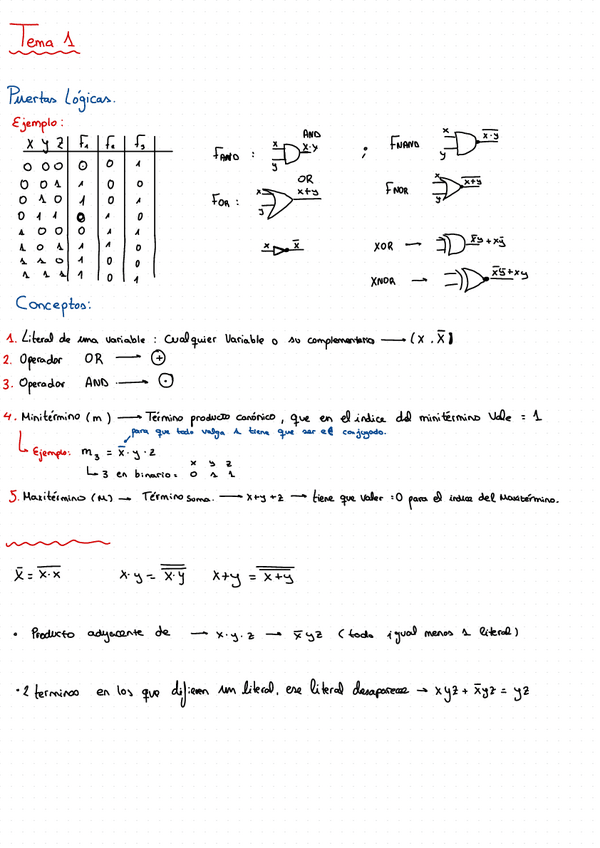 Tema 1
Puertas Lógicas.
Ejemplo:
x y z | F₁ | F₂ | F₃
0 0 0 | 0 | 0 | 1
0 0 1 | 1 | 0 | 0
0 1 0 | 1 | 0 | 0
0 1 1 | 0 | 1 | 0
1 0 0 | 0 | 1 | 0
1 0 1 | 1 | 1 | 0
1 1 0 | 1 | 0 | 0
1 1 1 | 1 | 0 | 1
F_AND : x y AND x·y ; F_NAND x y \overline{x·y}
F_OR : x y OR x+y F_NOR x y \overline{x+y}
x x̄ XOR → x̄y + xȳ
XNOR → x̄ȳ + xy
Conceptos:
1. Literal de una variable : Cualquier Variable o su complementario → (x . x̄)
2. Operador OR → +
3. Operador AND → ·
4. Minitérmino (m) → Término producto canónico, que en el índice del minitérmino Vale = 1
para que todo valga 1 tiene que ser el conjugado.
Ejemplo: m₃ = x̄ · y · z
x y z
3 en binario = 0 1 1
5. Maxitérmino (M) → Término soma. → x+y+z → tiene que valer =0 para el índice del Maxitérmino.
x̄ = \overline{x·x} x·y = \overline{\overline{x·y}} x+y = \overline{\overline{x+y}}
• Producto adyacente de → x·y·z → x̄yz (todo igual menos 1 literal)
· 2 terminos en los que difieren un literal, ese literal desaparece → xyz + x̄yz = yz